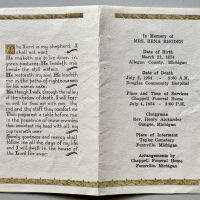 The Lord is my shepherd; I
shall not want.
He maketh me to lie down in
green pastures: He leadeth me
beside the still waters.
He restoreth my soul: He leadeth
me in the paths of righteousness
for his name's sake.
Yea, though I walk through the valley
of the shadow of death, I will fear
no evil: for thou art with me; thy
rod and thy staff they comfort me.
Thou preparest a table before me
in the presence of mine enemies:
thou anointest my head with oil; my
cup runneth over.
Surely goodness and mercy shall
follow me all the days of my life:
and I will dwell in the house of
the Lord for ever.
In Memory of
MRS. RENA RHODES
Date of Birth
March 21, 1874
Allegan County, Michigan
Date of Death
July 2, 1954 - 3:00 A.M.
Douglas Community Hospital
Place and Time of Services
Chappell Funeral Home
July 4, 1954 - 2:00 P.M.
Clergyman
Rev. Henry Alexander
Ganges, Michigan
Place of Interment
Taylor Cemetery
Fennville, Michigan
Arrangements by
Chappell Funeral Home
Fennville, Michigan